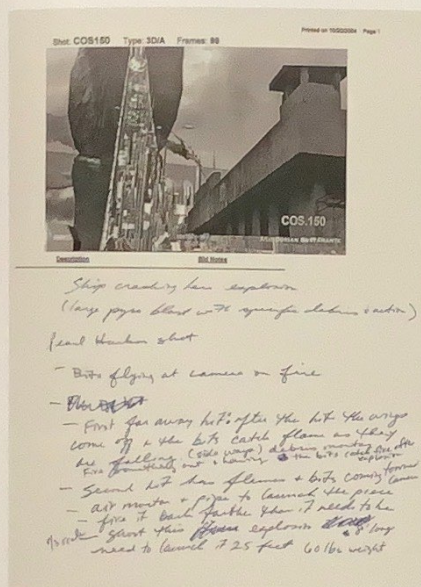 Printed on 10/20/2004 Page 1
Shot: COS150 Type: 3D/A Frames: 98
COS.150
Description Bid Notes
Ship crashing has explosion
(large pyro blast with specific debris action)
Pearl Harbor shot
- Bits flying at camera on fire
- First far away hit: after the hit the wings
come off & the bits catch flame as they
are falling (side ways) debris mortar
Fire something out & having the bits catch fire after
explosion
- Second hit has flames & bits coming forward
camera
- air mortar & pipe to launch the piece
- fire it back farther than it needs to be
shoot this explosion 8' long
need to launch it 25 feet 60 lbs weight